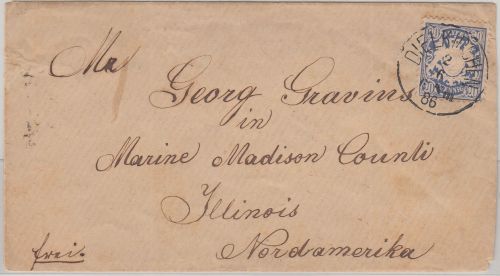 Mr
Georg Gravius
in
Marine Madison Counti
Illinois
Nordamerika
frei.
86